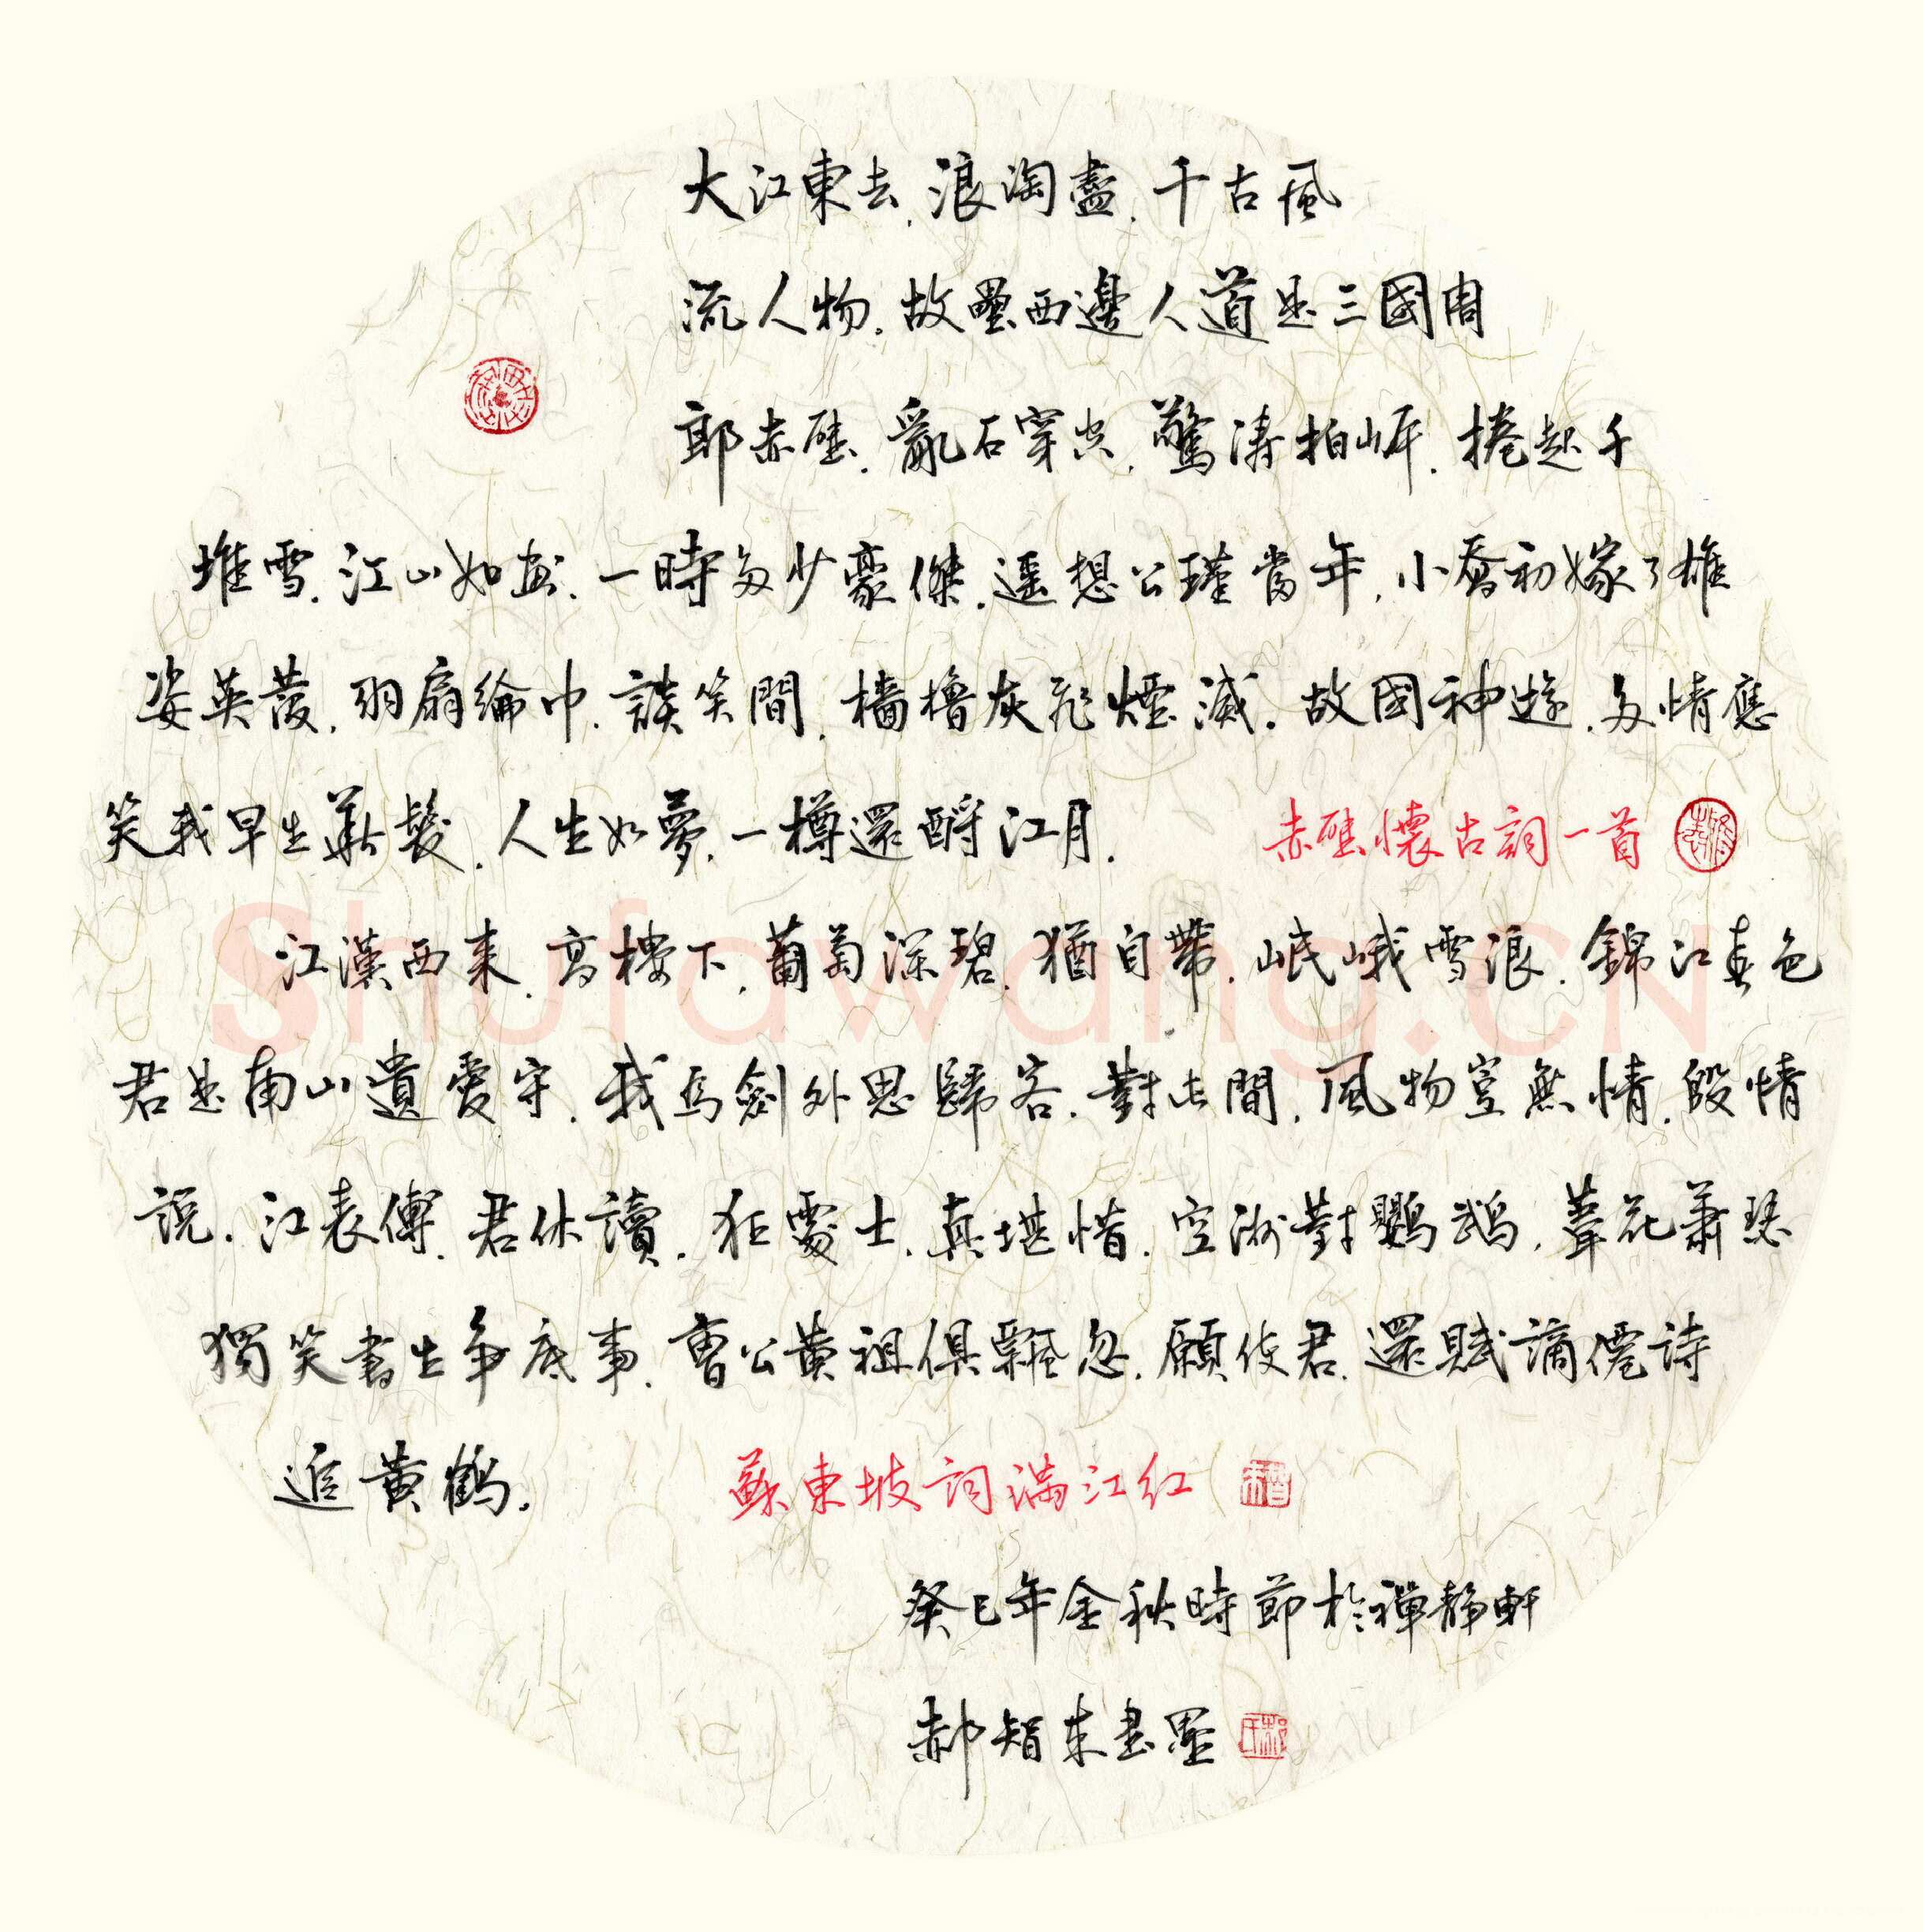 大江東去.浪淘盡.千古風
流人物.故壘西邊人道是三國周
郎赤壁.亂石穿空.驚濤拍岸.捲起千
堆雪.江山如畫.一時多少豪傑.遥想公瑾當年.小喬初嫁了雄
姿英發.羽扇綸巾.談笑間.檣櫓灰飛煙滅.故國神遊.多情應
笑我早生華髮.人生如夢.一樽還酹江月.
赤壁懷古詞一首
江漢西来.高樓下.葡萄深碧.猶自帶.岷峨雪浪.錦江春色
君是南山遺愛守.我為劍外思歸客.對此間.風物豈無情.殷情
説.江表傳.君休讀.狂處士.真堪惜.空洲對鸚鵡.葦花蕭瑟
獨笑書生争底事.曹公黄祖俱飄忽.願使君.還賦謫僊詩
追黄鶴.
蘇東坡詞滿江红
癸巳年金秋時節於禪静軒
郝智
書墨
Shufawang.CN